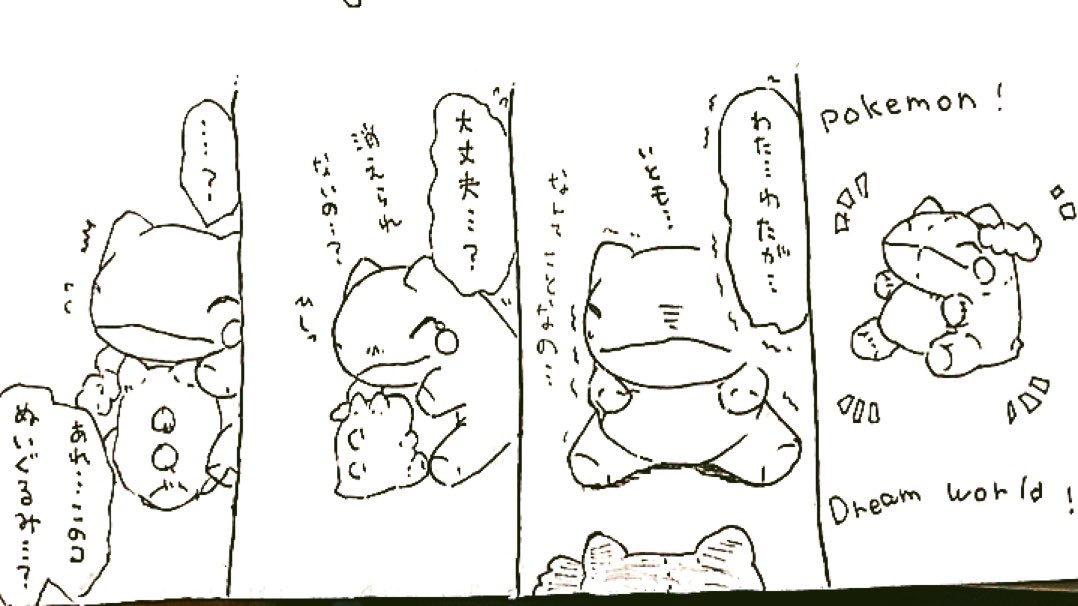 pokemon !
Dream world !
わた…わたが…
いとも…
なんてことなの…
大丈夫…?
消えられ
ないの…?
……?
あれ…このコ
ぬいぐるみ…?